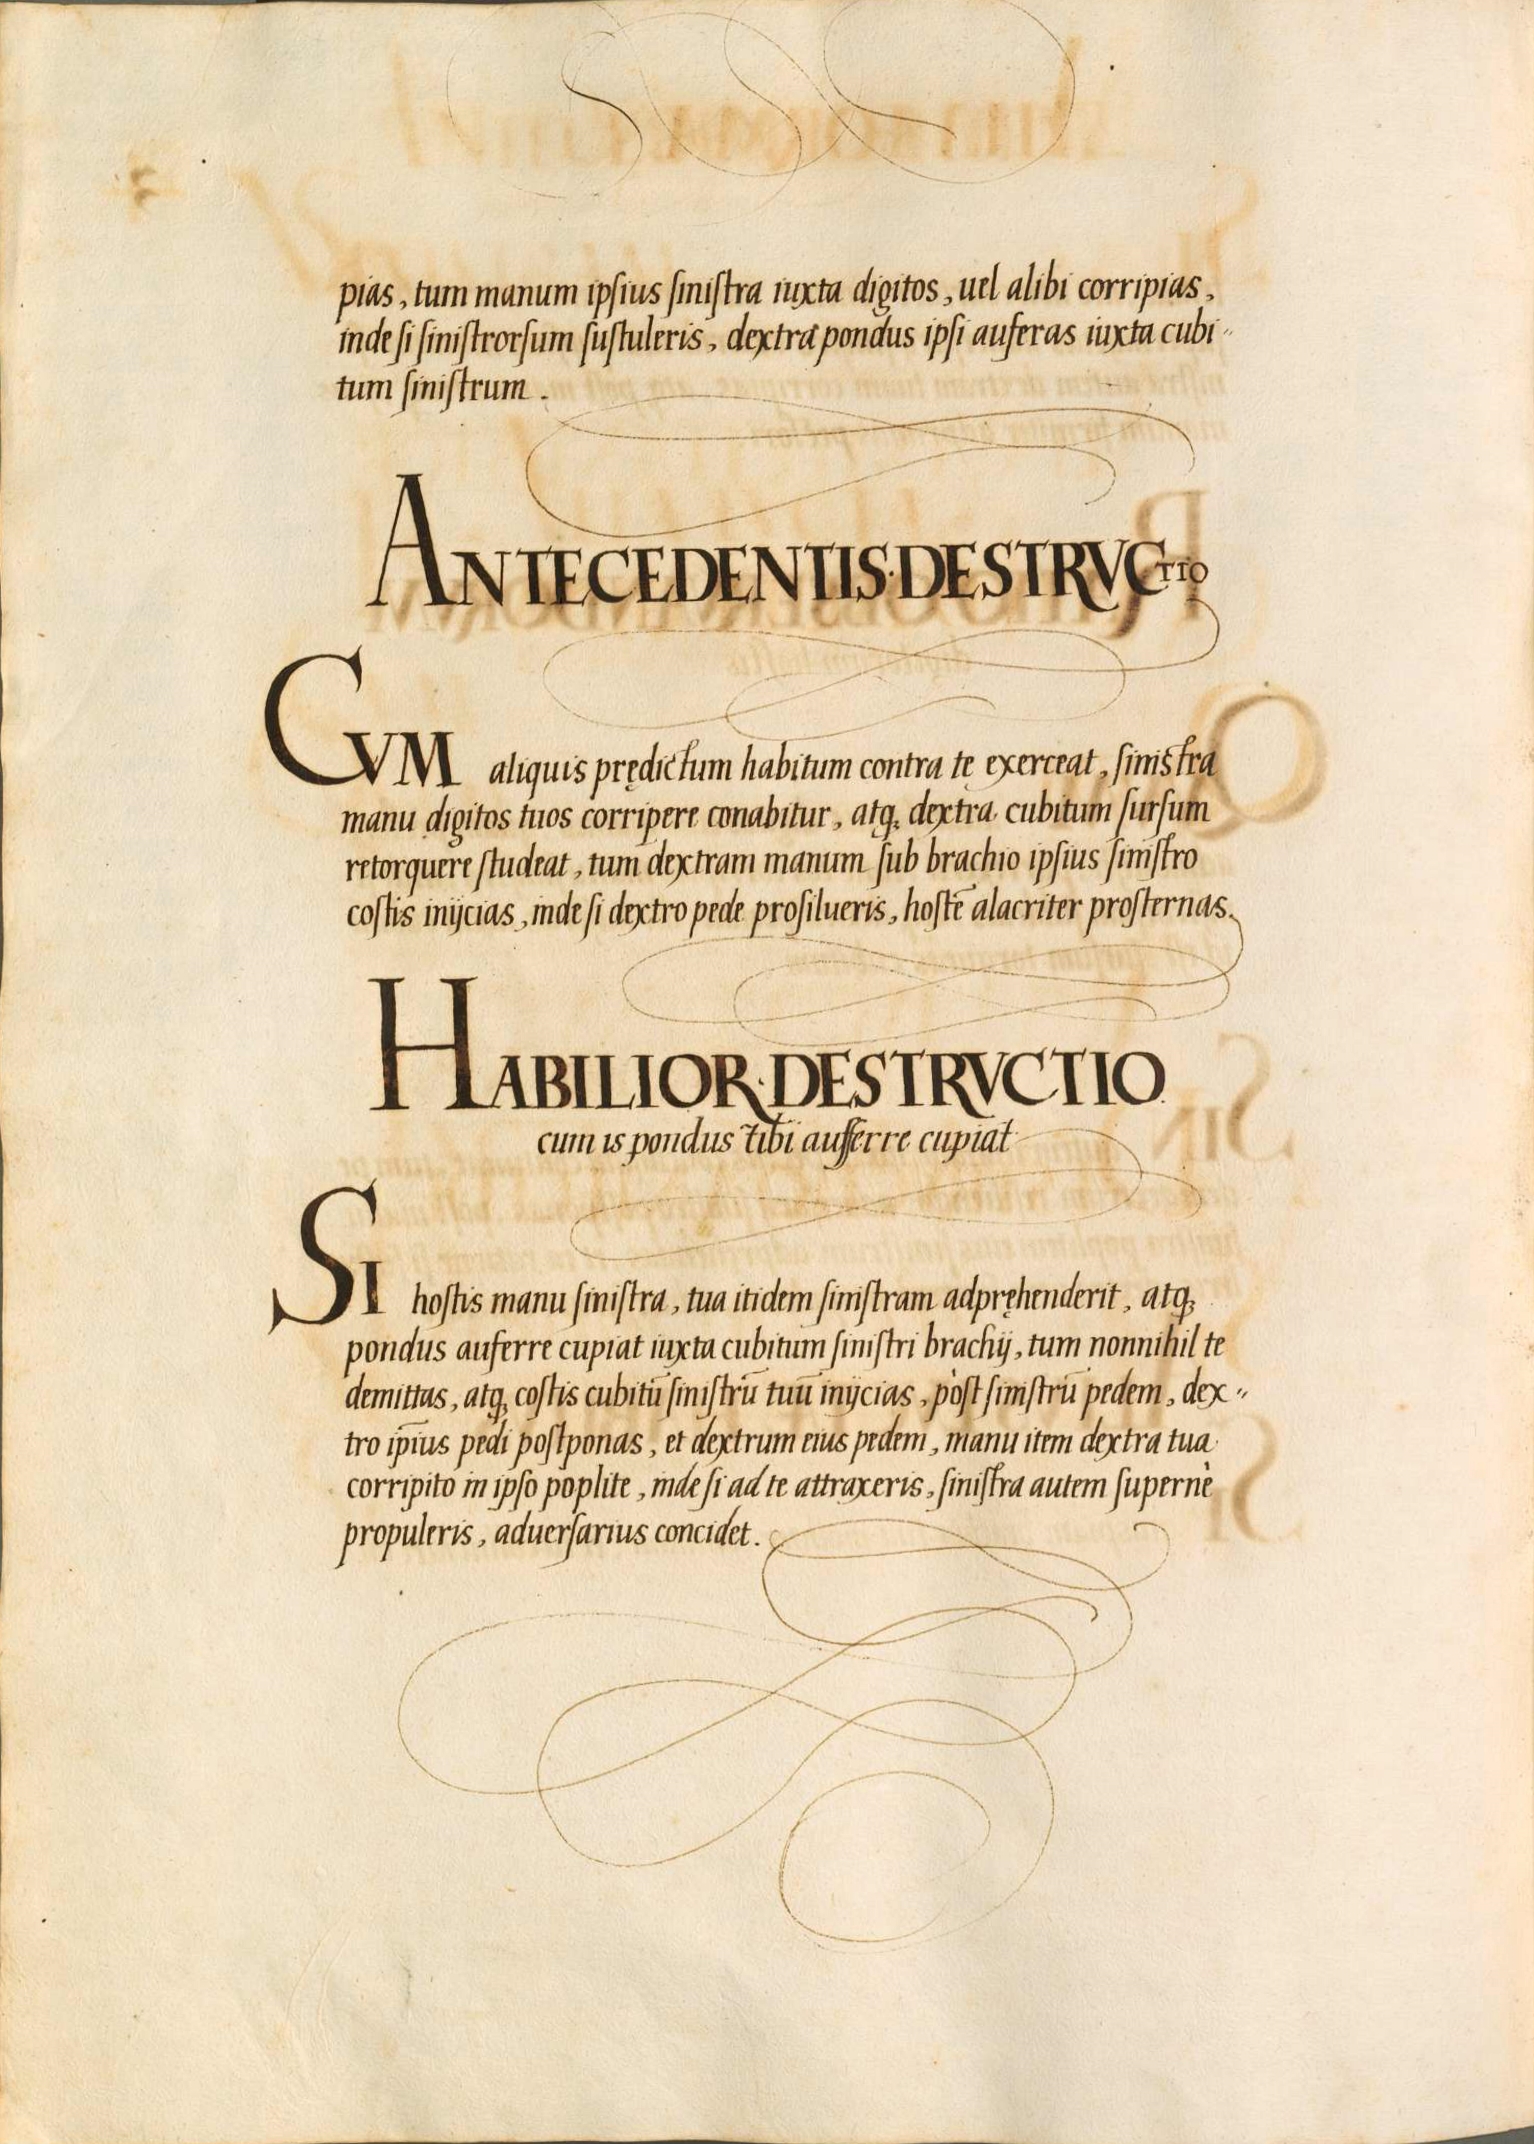 pias, tum manum ipſius ſiniſtra iuxta digitos, uel alibi corripias,
inde ſi ſiniſtrorſum ſuſtuleris, dextra pondus ipſi auferas iuxta cubi〃
tum ſiniſtrum.
ANTECEDENTIS·DESTRVCTIO
CVM aliquis prędictum habitum contra te exerceat, ſiniſtra
manu digitos tuos corripere conabitur, atq; dextra cubitum ſurſum
retorquere ſtudeat, tum dextram manum ſub brachio ipſius ſiniſtro
coſtis inijcias, inde ſi dextro pede proſilueris, hoſtē alacriter proſternas.
HABILIOR·DESTRVCTIO
cum is pondus tibi aufferre cupiat
SI hoſtis manu ſiniſtra, tua itidem ſiniſtram adpręhenderit, atq;
pondus auferre cupiat iuxta cubitum ſiniſtri brachij, tum nonnihil te
demittas, atq; coſtis cubitū ſiniſtrū tuū inijcias, pòſt ſiniſtrū pedem, dex〃
tro ip̄ius pedi poſtponas, et dextrum eius pedem, manu item dextra tua
corripito in ipſo poplite, inde ſi ad te attraxeris, ſiniſtra autem ſupernè
propuleris, aduerſarius concidet.